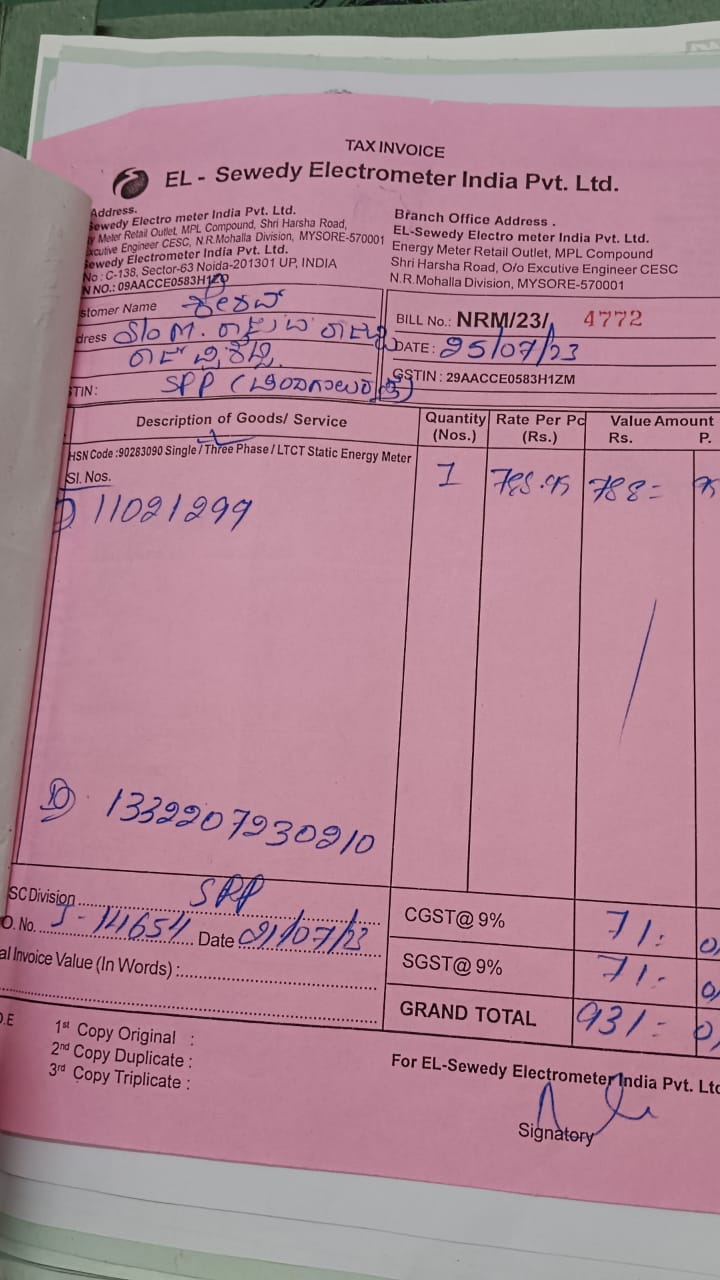 TAX INVOICE
EL - Sewedy Electrometer India Pvt. Ltd.
Address.
Sewedy Electro meter India Pvt. Ltd.
y Meter Retail Outlet, MPL Compound, Shri Harsha Road,
xcutive Engineer CESC, N.R.Mohalla Division, MYSORE-570001
Sewedy Electrometer India Pvt. Ltd.
No : C-138, Sector-63 Noida-201301 UP, INDIA
N NO.: 09AACCE0583H1
Branch Office Address .
EL-Sewedy Electro meter India Pvt. Ltd.
Energy Meter Retail Outlet, MPL Compound
Shri Harsha Road, O/o Excutive Engineer CESC
N.R.Mohalla Division, MYSORE-570001
stomer Name
dress S/o M.
TIN: SPP
BILL No.: NRM/23/ 4772
DATE : 25/07/23
GSTIN : 29AACCE0583H1ZM
Description of Goods/ Service Quantity (Nos.) Rate Per Pc (Rs.) Value Amount Rs. P.
HSN Code :90283090 Single / Three Phase / LTCT Static Energy Meter
Sl. Nos.
1 788.95 788=
11021299
1332207230210
SC Division SPP
O. No. J-14654 Date 21/07/23
al Invoice Value (In Words) :
CGST@ 9% 71:
SGST@ 9% 71.
GRAND TOTAL 931=
D.E
1st Copy Original :
2nd Copy Duplicate :
3rd Copy Triplicate :
For EL-Sewedy Electrometer India Pvt. Ltd
Signatory